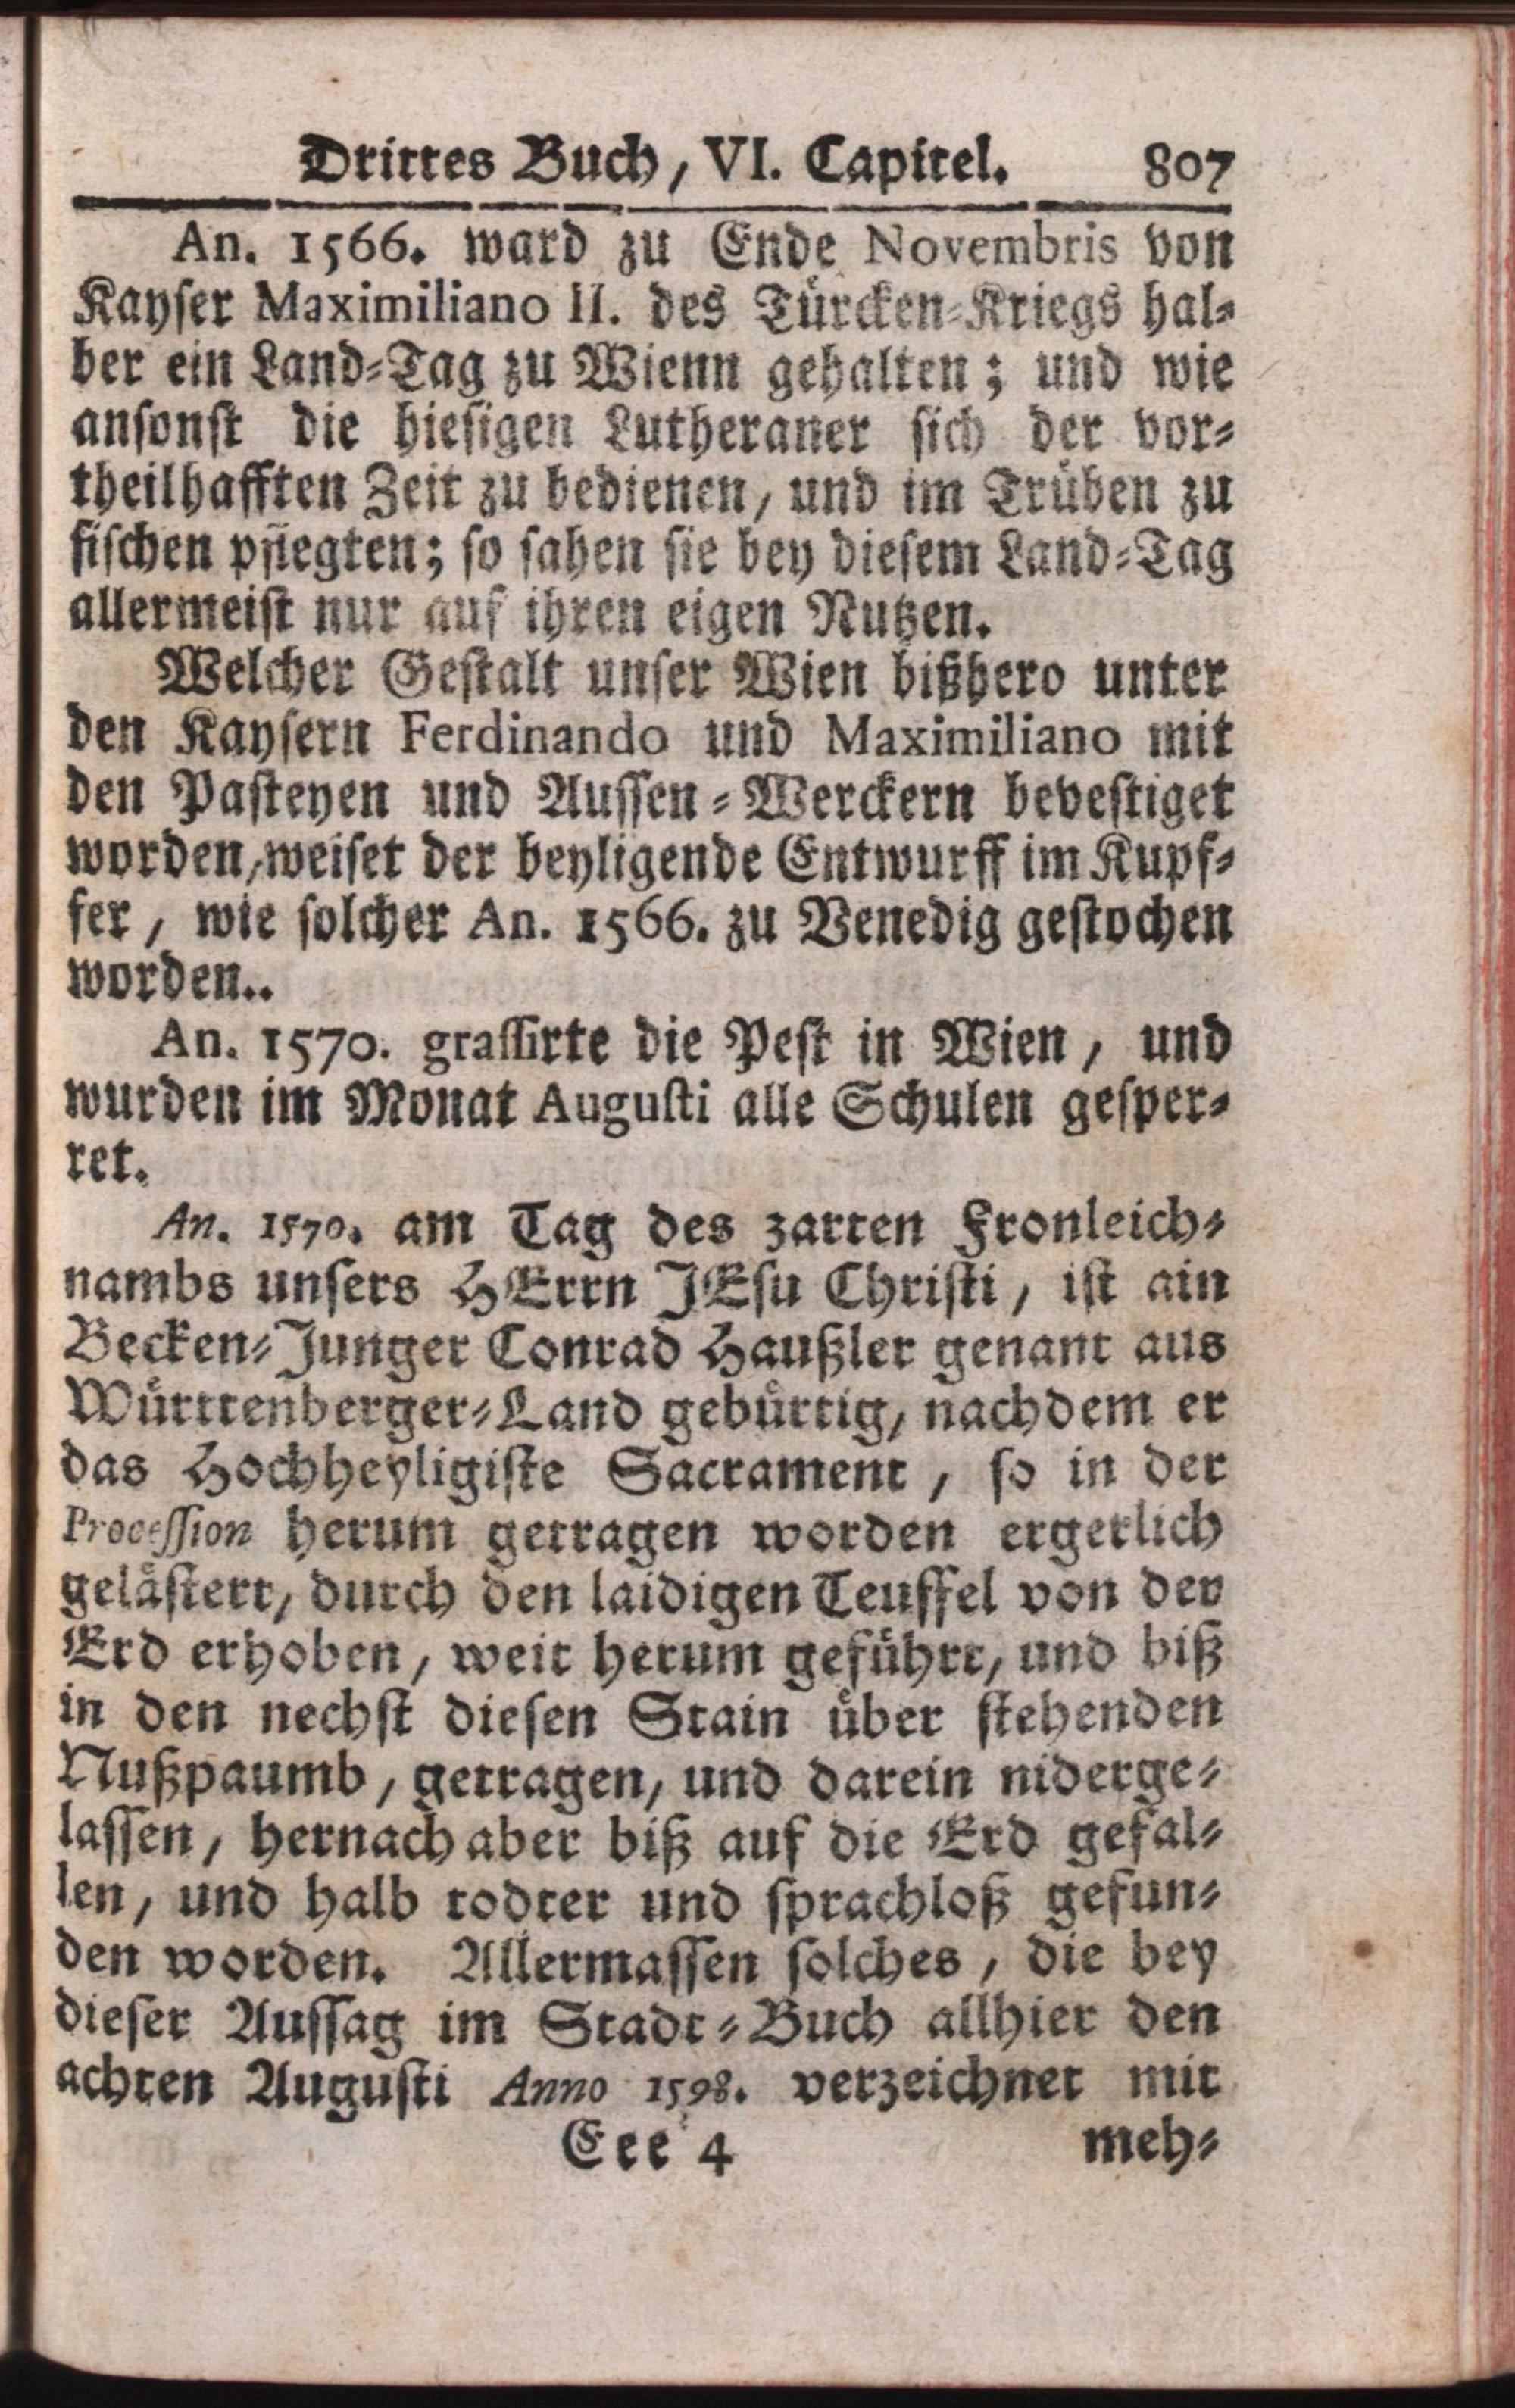 Drittes Buch, VI. Capitel. 807
An. 1566. ward zu Ende Novembris von
Kayser Maximiliano II. des Türcken-Kriegs hal-
ber ein Land-Tag zu Wienn gehalten; und wie
ansonst die hiesigen Lutheraner sich der vor-
theilhafften Zeit zu bedienen, und im Trüben zu
fischen pflegten; so sahen sie bey diesem Land-Tag
allermeist nur auf ihren eigen Nutzen.
Welcher Gestalt unser Wien bißhero unter
den Kaysern Ferdinando und Maximiliano mit
den Pasteyen und Aussen-Werckern bevestiget
worden, weiset der beyligende Entwurff im Kupf-
fer, wie solcher An. 1566. zu Venedig gestochen
worden..
An. 1570. grassirte die Pest in Wien, und
wurden im Monat Augusti alle Schulen gesper-
ret.
An. 1570. am Tag des zarten Fronleich-
nambs unsers HErrn JEsu Christi, ist ain
Becken-Junger Conrad Haußler genant aus
Württenberger-Land gebürtig, nachdem er
das Hochheyligiste Sacrament, so in der
Procession herum getragen worden ergerlich
gelästert, durch den laidigen Teuffel von der
Erd erhoben, weit herum geführt, und biß
in den nechst diesen Stain über stehenden
Nußpaumb, getragen, und darein niderge-
lassen, hernach aber biß auf die Erd gefal-
len, und halb todter und sprachloß gefun-
den worden. Allermassen solches, die bey
dieser Aussag im Stadt-Buch allhier den
achten Augusti Anno 1598. verzeichnet mit
Eee 4 meh-